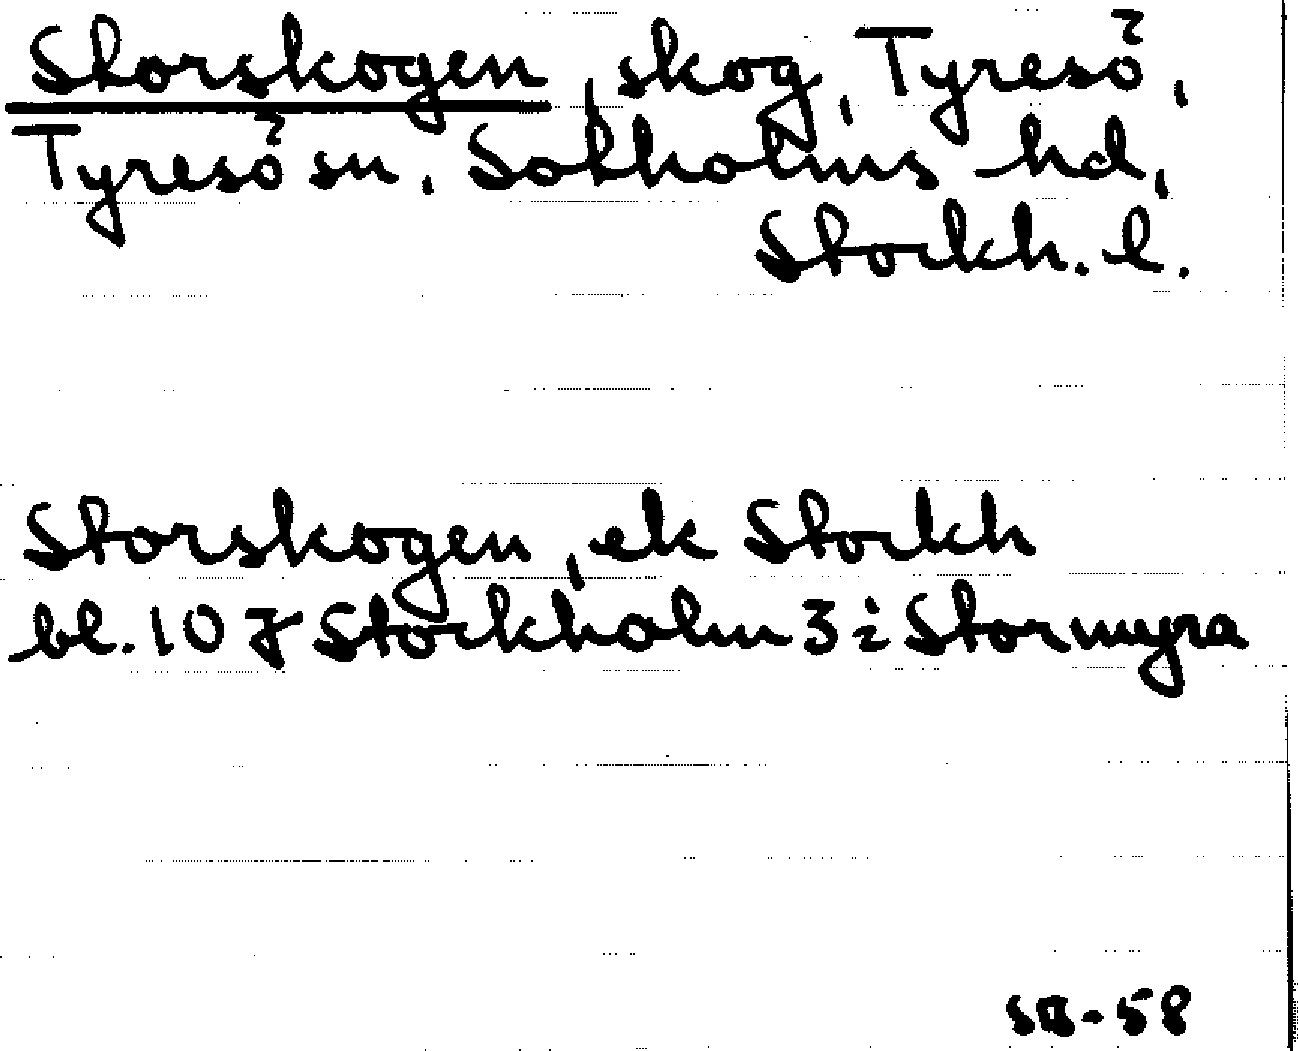 Storskogen, skog, Tyresö,
Tyresö sn, Sotholms hd,
Stockh. l.
Storskogen, ek Stockh
bl. 10 J Stockholm 3 i Stormyra
SB-58